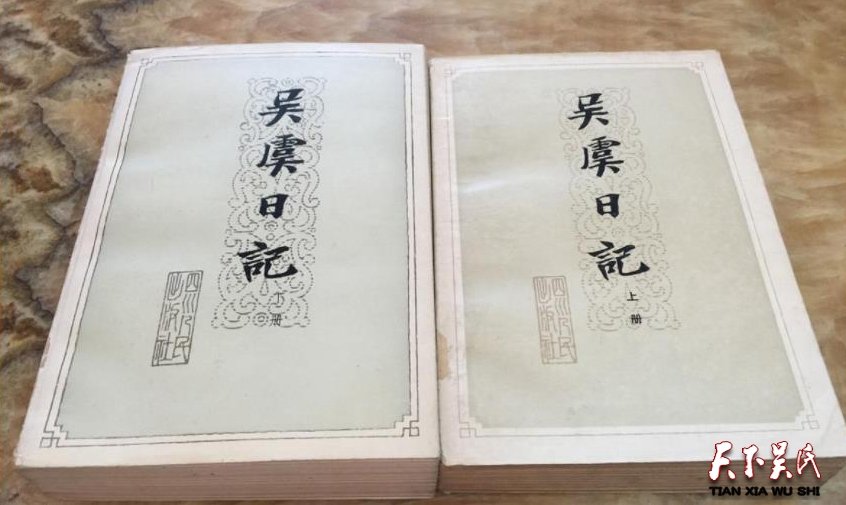 吴虞日記
下册
四川人民出版社
吴虞日記
上册
四川人民出版社
天下吴氏
TIAN XIA WU SHI